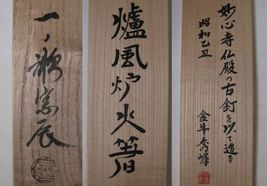 爐風炉火箸
妙心寺仏殿の古釘を以て造る
昭和乙丑
金牛秀峰
一ノ瀬宗辰